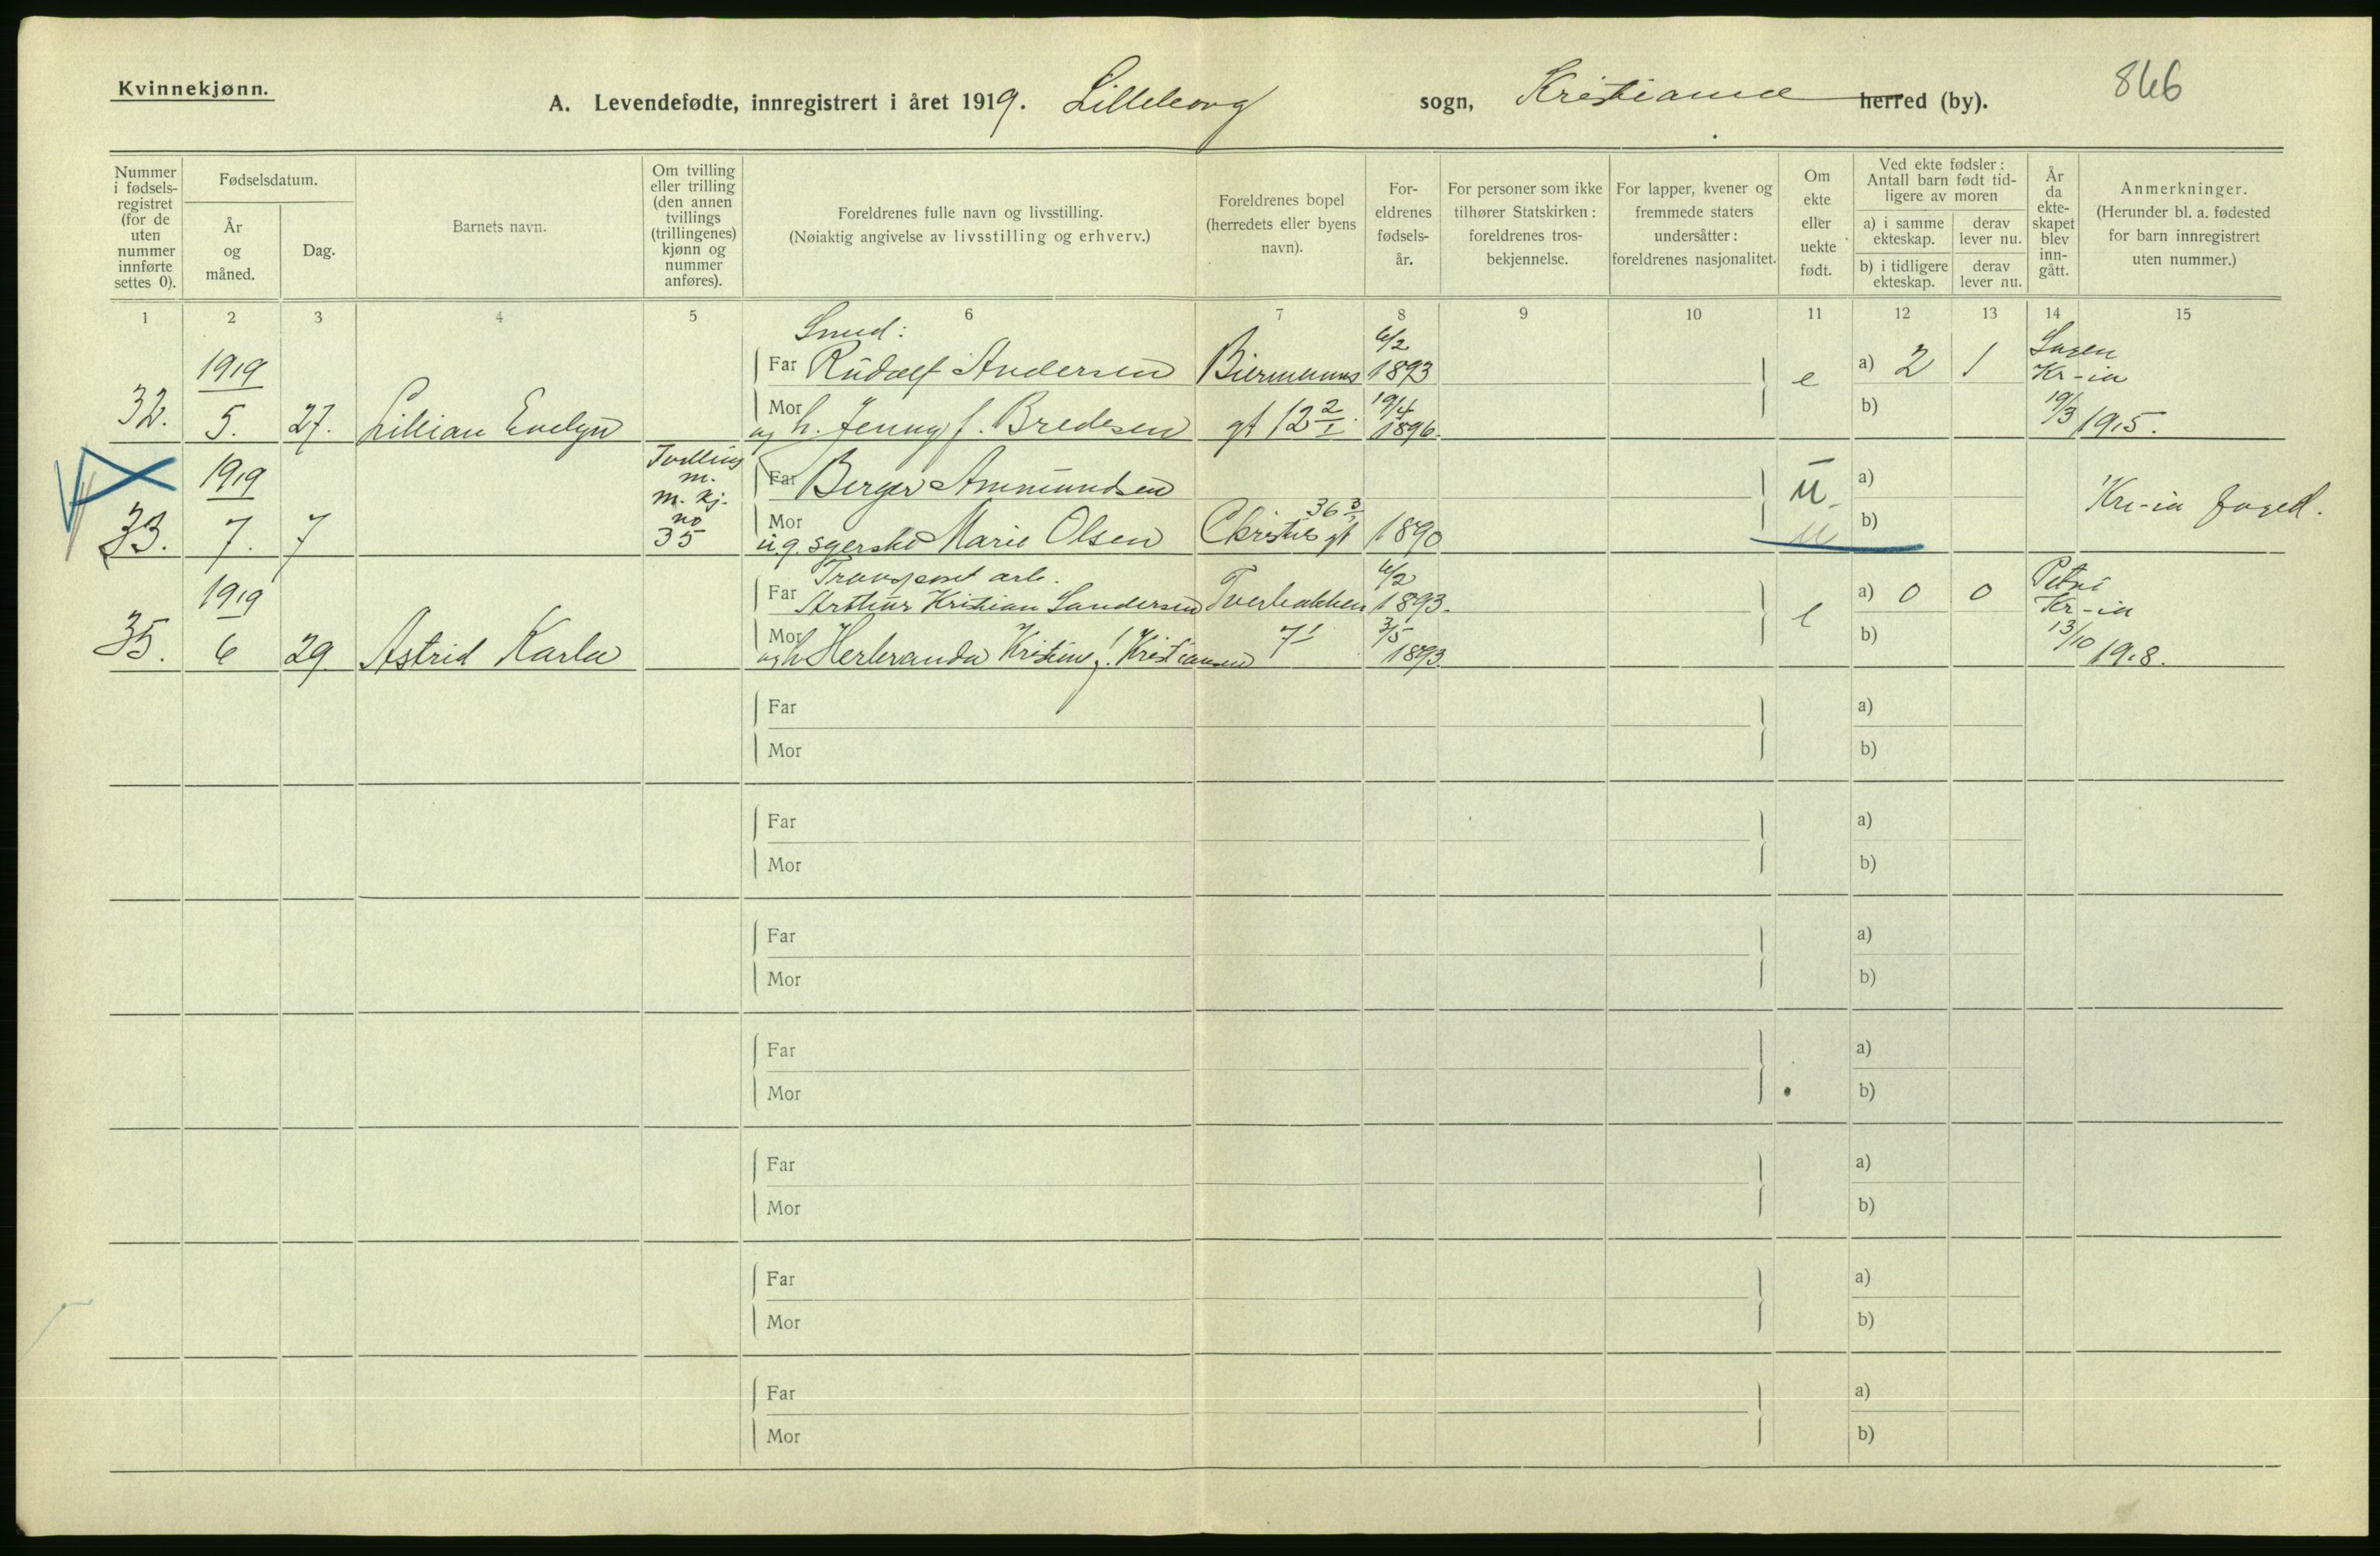 Kvinnekjønn.
A. Levendefødte, innregistrert i året 1919. Lilleborg sogn, Kristiania herred (by).
866
Nummer i fødsels- registret (for de uten nummer innførte settes 0).
Fødselsdatum.
År og måned.
Dag.
Barnets navn.
Om tvilling eller trilling (den annen tvillings (trillingenes) kjønn og nummer anføres).
Foreldrenes fulle navn og livsstilling.
(Nøiaktig angivelse av livsstilling og erhverv.)
Foreldrenes bopel (herredets eller byens navn).
For- eldrenes fødsels- år.
For personer som ikke tilhører Statskirken: foreldrenes tros- bekjennelse.
For lapper, kvener og fremmede staters undersåtter: foreldrenes nasjonalitet.
Om ekte eller uekte født.
Ved ekte fødsler: Antall barn født tid- ligere av moren
a) i samme ekteskap.
derav lever nu.
b) i tidligere ekteskap.
derav lever nu.
År da ekte- skapet blev inn- gått.
Anmerkninger.
(Herunder bl. a. fødested for barn innregistrert uten nummer.)
1 2 3 4 5 6 7 8 9 10 11 12 13 14 15
Smed:
6/2
1919 Far Rudolf Andersen Biermanns 1893 e a) 2 1 Sagen Kr-ia
32. 5. 27. Lilian Evelyn Mor og h. Jenny f. Bredesen gt 12 2/I 19/4 1896. b) 19/3 1915.
1919 Tvilling m. m. kj. no 35 Far Berger Ammundsen u. a) Kr-ia føged.
33. 7. 7 Mor u.g. syerske Marie Olsen Christies gt 36 3/1 1890 u b)
Transport arb.
6/2
1919 Far Arthur Kristian Sandersen Tverbakken 1893. e a) 0 0 Petri Kr-ia
35. 6 29. Astrid Karla Mor og h. Herbranda Kristine f. Kristiansen 7I 3/5 1893. b) 13/10 1918.
Far a)
Mor b)
Far a)
Mor b)
Far a)
Mor b)
Far a)
Mor b)
Far a)
Mor b)
Far a)
Mor b)
Far a)
Mor b)